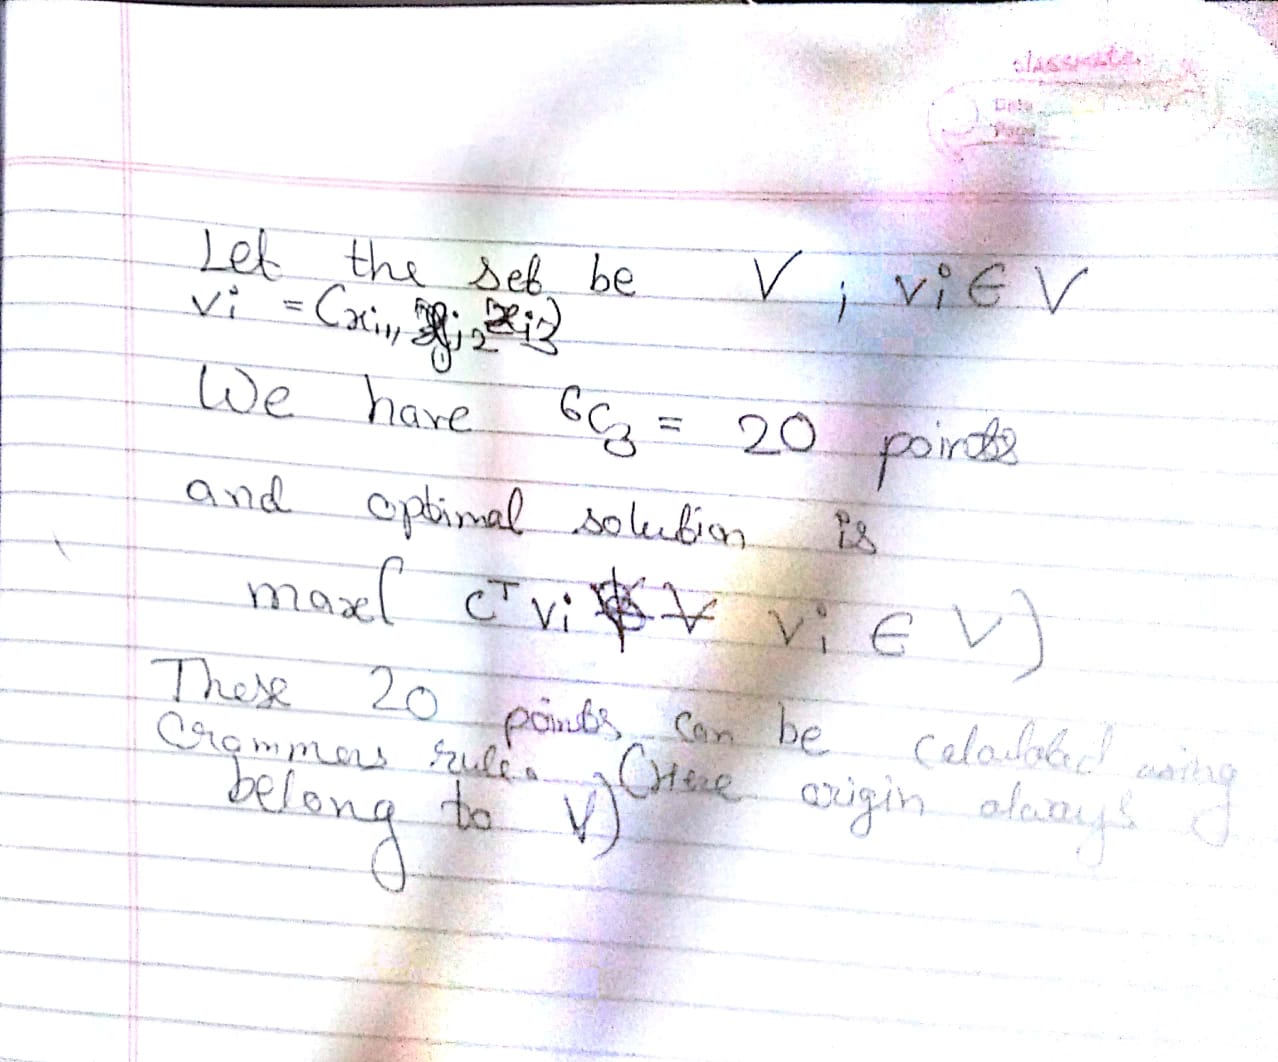 classmate
Date
Page
Let the set be V ; vi ∈ V
vi = (xi1, xi2 xi3)
We have 6C3 = 20 points
and optimal solution is
max( cᵀ vi ∀ vi ∈ V)
These 20 points can be calculated using
Crammers rule. (Here origin always
belong to V)